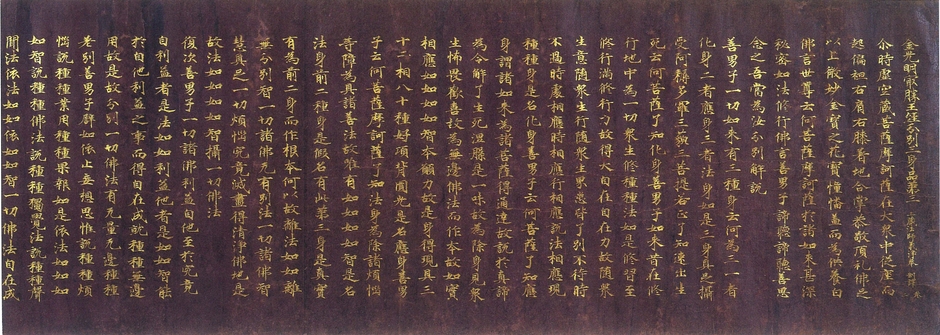 金光明最勝王經分別三身品第三 三藏法師義淨奉 制譯
尒時虛空藏菩薩摩訶薩在大衆中從座而
起偏袒右肩右膝著地合掌恭敬頂礼佛足
以上微妙金寶之花寶幢幡蓋而為供養白
佛言世尊云何菩薩摩訶薩於諸如來甚深
秘密如法修行佛言善男子諦聽諦聽善思
念之吾當為汝分別解說
善男子一切如來有三種身云何為三一者
化身二者應身三者法身如是三身具足攝
受阿耨多羅三藐三菩提若正了知速出生
死云何菩薩了知化身善男子如來昔在修
行地中為一切衆生修種種法如是修習至
修行滿修行力故得大自在自在力故隨衆
生意隨衆生行隨衆生界悉皆了別不待時
不過時處相應時相應行相應說法相應現
種種身是名化身善男子云何菩薩了知應
身謂諸如來為諸菩薩得通達故說於真諦
為令解了生死涅槃是一味故為除身見衆
生怖畏歡喜故為無邊佛法而作本故如實
相應如如如如智本願力故是身得現具三
十二相八十種好項背圓光是名應身善男
子云何菩薩摩訶薩了知法身為除諸煩惱
等障為具諸善法故唯有如如如如智是名
法身前二種身是假名有此第三身是真實
有為前二身而作根本何以故離法如如離
無分別智一切諸佛无有別法一切諸佛智
慧具足一切煩惱究竟滅盡得清淨佛地是
故法如如如如智攝一切佛法
復次善男子一切諸佛利益自他至於究竟
自利益者是法如如利益他者是如如智能
於自他利益之事而得自在成就種種無邊
用故是故分別一切佛法有无量无邊種種
差別善男子譬如依止妄想思惟說種種煩
惱說種種業用種種果報如是依法如如
如智說種種佛法說種種獨覺法說種種聲
聞法依法如如依如如智一切佛法自在成